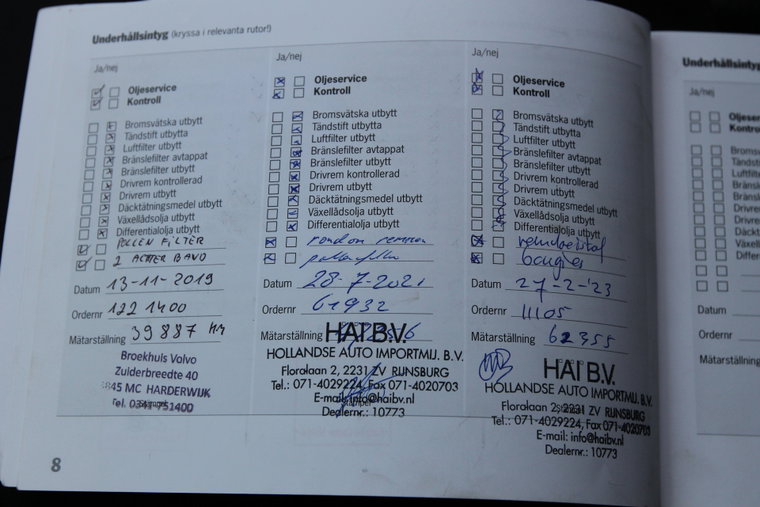 Underhållsintyg (kryssa i relevanta rutor!)
Ja/nej
Oljeservice
Kontroll
Bromsvätska utbytt
Tändstift utbytta
Luftfilter utbytt
Bränslefilter avtappat
Bränslefilter utbytt
Drivrem kontrollerad
Drivrem utbytt
Däcktätningsmedel utbytt
Växellådsolja utbytt
Differentialolja utbytt
POLLEN FILTER
2 ACHTER BAND
Datum 13-11-2019
Ordernr 122 1400
Mätarställning 39887 km
Broekhuis Volvo
Zuiderbreedte 40
3845 MC HARDERWIJK
Tel. 0341-751400
Ja/nej
Oljeservice
Kontroll
Bromsvätska utbytt
Tändstift utbytta
Luftfilter utbytt
Bränslefilter avtappat
Bränslefilter utbytt
Drivrem kontrollerad
Drivrem utbytt
Däcktätningsmedel utbytt
Växellådsolja utbytt
Differentialolja utbytt
rondom remmen
pollenfilter
Datum 28-7-2021
Ordernr 61932
Mätarställning
HAI B.V.
HOLLANDSE AUTO IMPORTMIJ. B.V.
Floralaan 2, 2231 ZV RIJNSBURG
Tel.: 071-4029224, Fax 071-4020703
E-mail: info@haibv.nl
Dealernr.: 10773
Ja/nej
Oljeservice
Kontroll
Bromsvätska utbytt
Tändstift utbytta
Luftfilter utbytt
Bränslefilter avtappat
Bränslefilter utbytt
Drivrem kontrollerad
Drivrem utbytt
Däcktätningsmedel utbytt
Växellådsolja utbytt
Differentialolja utbytt
remvloeistof
bougies
Datum 27-2-'23
Ordernr 11105
Mätarställning 62355
HAI B.V.
HOLLANDSE AUTO IMPORTMIJ. B.V.
Floralaan 2, 2231 ZV RIJNSBURG
Tel.: 071-4029224, Fax 071-4020703
E-mail: info@haibv.nl
Dealernr.: 10773
8
Underhållsintyg
Ja/nej
Oljeser
Kontrol
Broms
Tändst
Luftfil
Bränsl
Bränsl
Drivre
Drivre
Däckt
Växell
Differe
Datum
Ordernr
Mätarställning